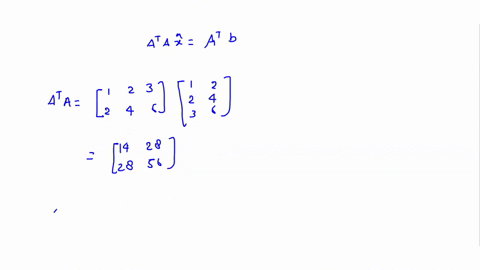 AᵀA x̂ = Aᵀ b
AᵀA = [1 2 3; 2 4 6] [1 2; 2 4; 3 6]
= [14 28; 28 56]